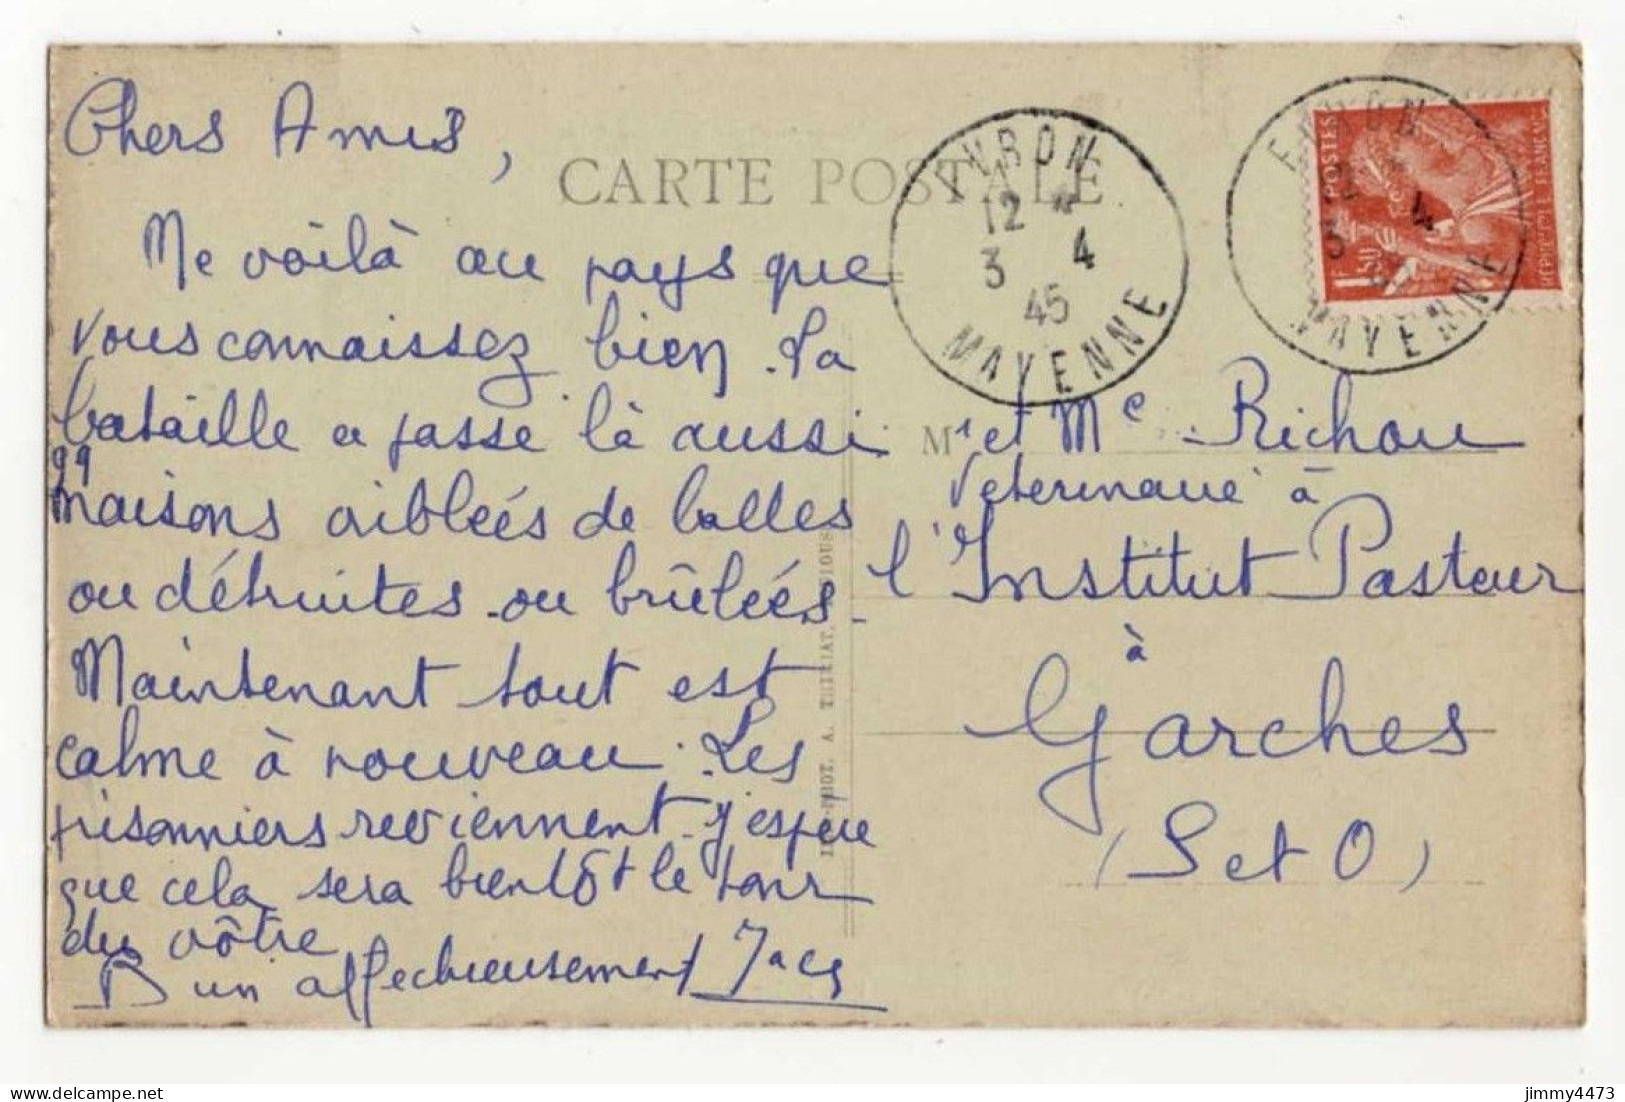 Chers Amis,
CARTE POSTALE
Me voilà au pays que
vous connaissez bien. La
bataille a passé là aussi
99
maisons criblées de balles
ou détruites ou brûlées.
Maintenant tout est
calme à nouveau. Les
prisonniers reviennent. J'espère
que cela sera bientôt le tour
du vôtre
Bien affectueusement Jacq
EVRON
12 *
3 4
45
MAYENNE
EVRON
12 *
3 4
MAYENNE
POSTES
1F50
REPUBLIQUE FRANÇAISE
Mr et Me Richou
Veterinaire à
l'Institut Pasteur
à
Garches
(S et O)
PHOT. A. THIRIAT,
jimmy4473